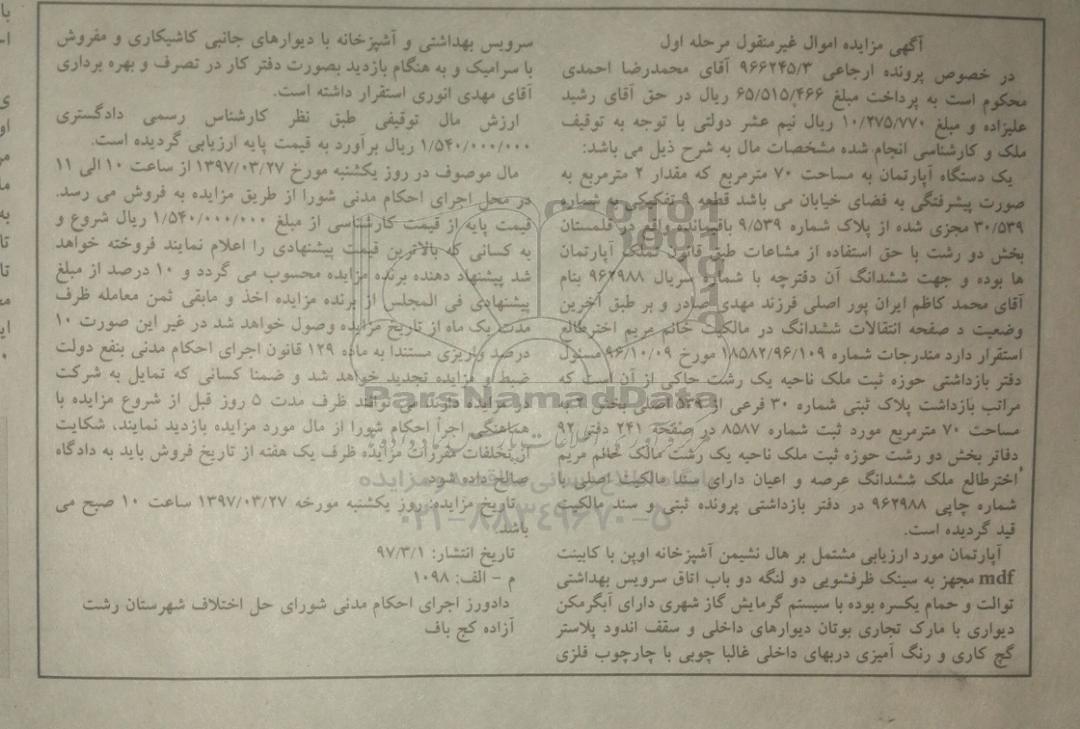 آگهی مزایده اموال غیرمنقول مرحله اول
در خصوص پرونده ارجاعی ۹۶۶۲۴۵/۳ آقای محمدرضا احمدی
محکوم است به پرداخت مبلغ ۶۵/۵۱۵/۴۶۶ ریال در حق آقای رشید
علیزاده و مبلغ ۱۰/۲۷۵/۷۷۰ ریال نیم عشر دولتی با توجه به توقیف
ملک و کارشناسی انجام شده مشخصات مال به شرح ذیل می باشد:
یک دستگاه آپارتمان به مساحت ۷۰ مترمربع که مقدار ۲ مترمربع به
صورت پیشرفتگی به فضای خیابان می باشد قطعه ۹ تفکیکی به شماره
۳۰/۵۳۹ مجزی شده از پلاک شماره ۹/۵۳۹ باقیمانده واقع در قلمستان
بخش دو رشت با حق استفاده از مشاعات طبق قانون تملک آپارتمان
ها بوده و جهت ششدانگ آن دفترچه با شماره سریال ۹۶۲۹۸۸ بنام
آقای محمد کاظم ایران پور اصلی فرزند مهدی صادر و بر طبق آخرین
وضعیت د صفحه انتقالات ششدانگ در مالکیت خانم مریم اخترطالع
استقرار دارد مندرجات شماره ۱۸۵۸۲/۹۶/۱۰۹ مورخ ۹۶/۱۰/۰۹ مسئول
دفتر بازداشتی حوزه ثبت ملک ناحیه یک رشت حاکی از آن است که
مراتب بازداشت پلاک ثبتی شماره ۳۰ فرعی از ۵۳۹ اصلی بخش ۲ به
مساحت ۷۰ مترمربع مورد ثبت شماره ۸۵۸۷ در صفحه ۲۴۱ دفتر ۹۲
دفاتر بخش دو رشت حوزه ثبت ملک ناحیه یک رشت مالک خانم مریم
اخترطالع ملک ششدانگ عرصه و اعیان دارای سند مالکیت اصلی با
شماره چاپی ۹۶۲۹۸۸ در دفتر بازداشتی پرونده ثبتی و سند مالکیت
قید گردیده است.
آپارتمان مورد ارزیابی مشتمل بر هال نشیمن آشپزخانه اوپن با کابینت
mdf مجهز به سینک ظرفشویی دو لنگه دو باب اتاق سرویس بهداشتی
توالت و حمام یکسره بوده با سیستم گرمایش گاز شهری دارای آبگرمکن
دیواری با مارک تجاری بوتان دیوارهای داخلی و سقف اندود پلاستر
گچ کاری و رنگ آمیزی دربهای داخلی غالبا چوبی با چارچوب فلزی
سرویس بهداشتی و آشپزخانه با دیوارهای جانبی کاشیکاری و مفروش
با سرامیک و به هنگام بازدید بصورت دفتر کار در تصرف و بهره برداری
آقای مهدی انوری استقرار داشته است.
ارزش مال توقیفی طبق نظر کارشناس رسمی دادگستری
۱/۵۴۰/۰۰۰/۰۰۰ ریال برآورد به قیمت پایه ارزیابی گردیده است.
مال موصوف در روز یکشنبه مورخ ۱۳۹۷/۰۳/۲۷ از ساعت ۱۰ الی ۱۱
در محل اجرای احکام مدنی شورا از طریق مزایده به فروش می رسد.
قیمت پایه از قیمت کارشناسی از مبلغ ۱/۵۴۰/۰۰۰/۰۰۰ ریال شروع و
به کسانی که بالاترین قیمت پیشنهادی را اعلام نمایند فروخته خواهد
شد پیشنهاد دهنده برنده مزایده محسوب می گردد و ۱۰ درصد از مبلغ
پیشنهادی فی المجلس از برنده مزایده اخذ و مابقی ثمن معامله ظرف
مدت یک ماه از تاریخ مزایده وصول خواهد شد در غیر این صورت ۱۰
درصد واریزی مستندا به ماده ۱۲۹ قانون اجرای احکام مدنی بنفع دولت
ضبط و مزایده تجدید خواهد شد و ضمنا کسانی که تمایل به شرکت
در مزایده دارند می توانند ظرف مدت ۵ روز قبل از شروع مزایده با
هماهنگی اجرا احکام شورا از مال مورد مزایده بازدید نمایند، شکایت
از تخلفات مقررات مزایده ظرف یک هفته از تاریخ فروش باید به دادگاه
صالح داده شود.
تاریخ مزایده: روز یکشنبه مورخه ۱۳۹۷/۰۳/۲۷ ساعت ۱۰ صبح می
باشد.
تاریخ انتشار: ۹۷/۳/۱
م - الف: ۱۰۹۸
دادورز اجرای احکام مدنی شورای حل اختلاف شهرستان رشت
آزاده کج باف
ParsNamadData
۰۲۱-۸۸۳۴۹۶۷۰-۵